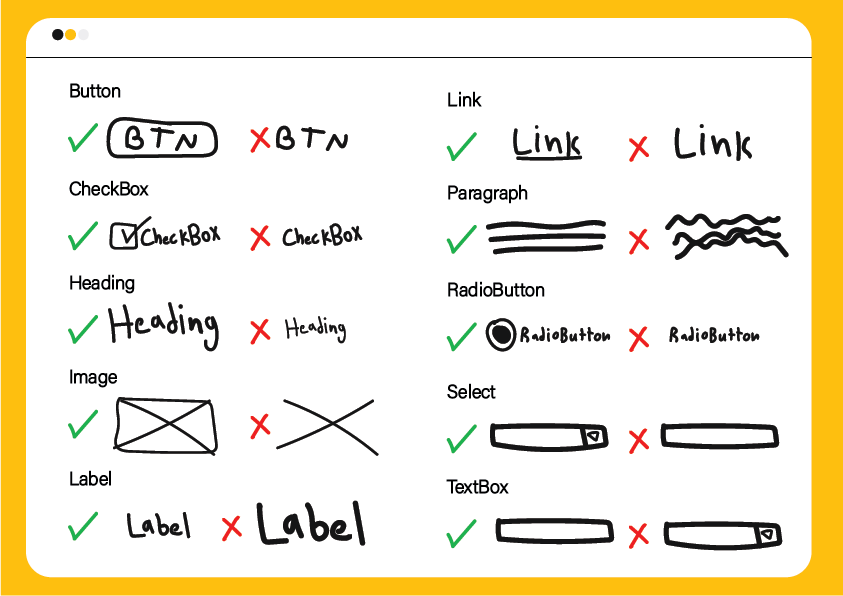 Button
BTN BTN
CheckBox
CheckBox CheckBox
Heading
Heading Heading
Image
Label
Label Label
Link
Link Link
Paragraph
RadioButton
RadioButton RadioButton
Select
TextBox